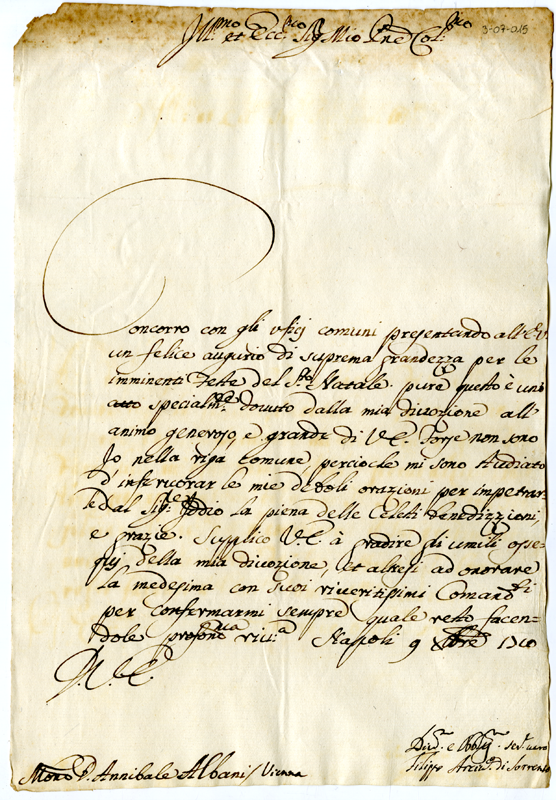 Ill.mo et Ecc.mo Sig.r Mio P.ne Col.mo
3-07-015
Concorro con gli ufficj comuni presentando all'E.V.
un felice augurio di suprema grandezza per le
imminenti Feste del S.to Natale. purè questo è un'
atto dovuto dalla mia divozione all'
animo generoso, e grande di V.E. Forse non sono
Jo nella riga Comune perciocche mi sono studiato
d'infervorar le mie deboli orazioni per impetrar
le dal Sig.r Iddio la piena delle Celesti benedizzioni,
e grazie. Supplico V.E. à gradire gli umili osse-
quij della mia divozione, et altresi ad onorare
la medesima con suoi riveritissimi Comand.ti
per confermarmi sempre quale resto facen-
dole profond.ma riv.a Napoli 9 Xbre 1710
D.V.E.
Div.mo e Obblig.mo Ser.r vero
Filippo Arciv.o di Sorrento
Mons.r D. Annibale Albani / Vienna